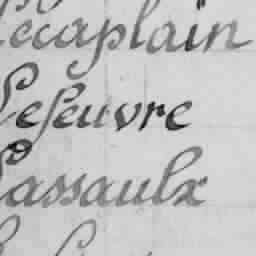 Lecaplain
Lefeuvre
Lassaulx